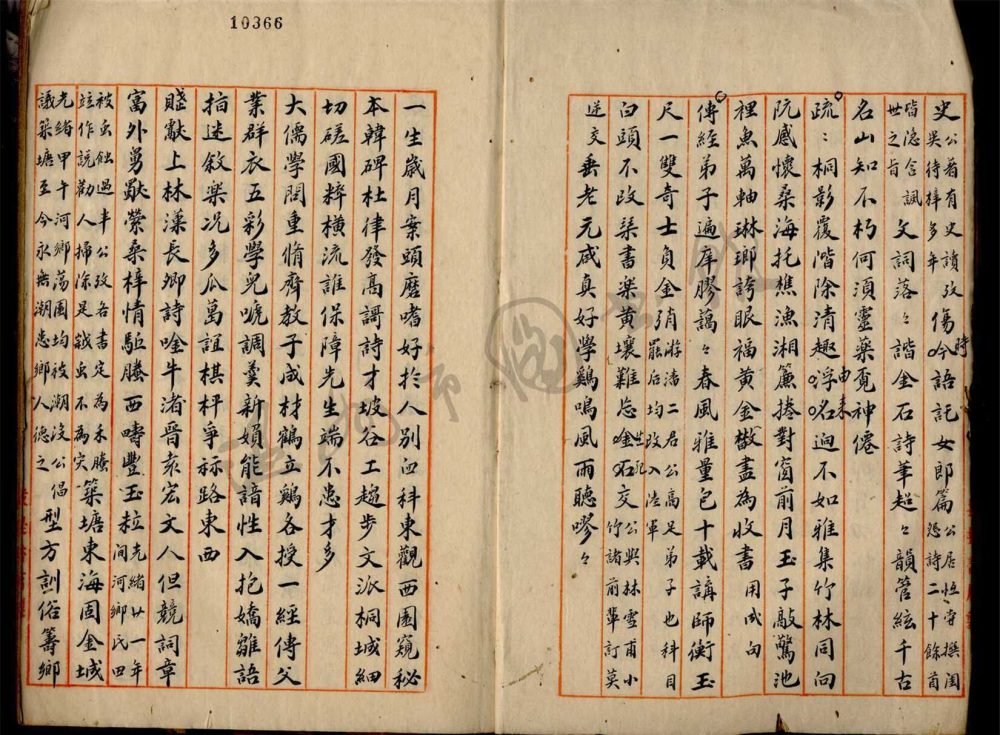 10366
史公著有史讀攷吳待梓多年傷時吟語託女郎篇公居恒寺撰閨怨詩二十餘首
皆隱含諷世之旨文詞落々諧金石詩筆超々韻管絃千古
名山知不朽何須靈藥覓神僊
疏々桐影覆階除清趣由来浮名迥不如雅集竹林同向
阮感懷桑海托樵漁湘簾捲對窗前月玉子敲驚池
裡魚萬軸琳瑯誇眼福黄金散盡為收書用成句
傳經弟子遍庠膠藹々春風雅量包十載講師衡玉
尺一雙奇士負金弰游潘二君公高足弟子也科目罷后均改入陸軍
白頭不改琹書樂黄壤難忘金石交公與林雪甫小竹諸前輩訂莫
逆交垂老元戚真好學鷄鳴風雨聽嘐々
一生歲月案頭磨嗜好於人別臼科東觀西園窺秘
本韓碑杜律發高謌詩才坡谷工趨步文派桐城細
切磋國粹橫流誰保障先生端不患才多
大儒學問重脩齊教子成材鶴立鷄各授一經傳父
業群衣五彩學兒嗁調羹新婦能諳性入抱嬌雛語
拍迷敘樂况多瓜葛誼棋枰爭袮路東西
賤獻上林漢長卿詩唫牛渚晋袁宏文人但競詞章
富外舅歇縈桑梓情駈螣西疇豐玉粒光緒廿一年間河鄉民田
被虫蝕過半公攷各書定為禾螣竝作説勸人掃除是歲虫不為灾築塘東海固金城
光緒甲午河鄉蕩園均被潮沒公倡議築塘至今永無潮患鄉人德之型方訓俗籌鄉